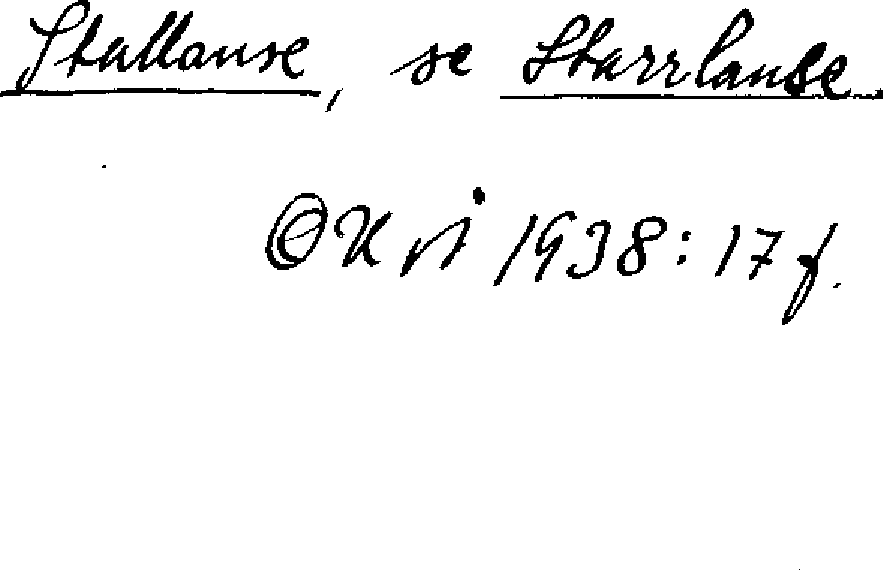 Stallanse, se Starrlanse.
OK vj 1938: 17 f.